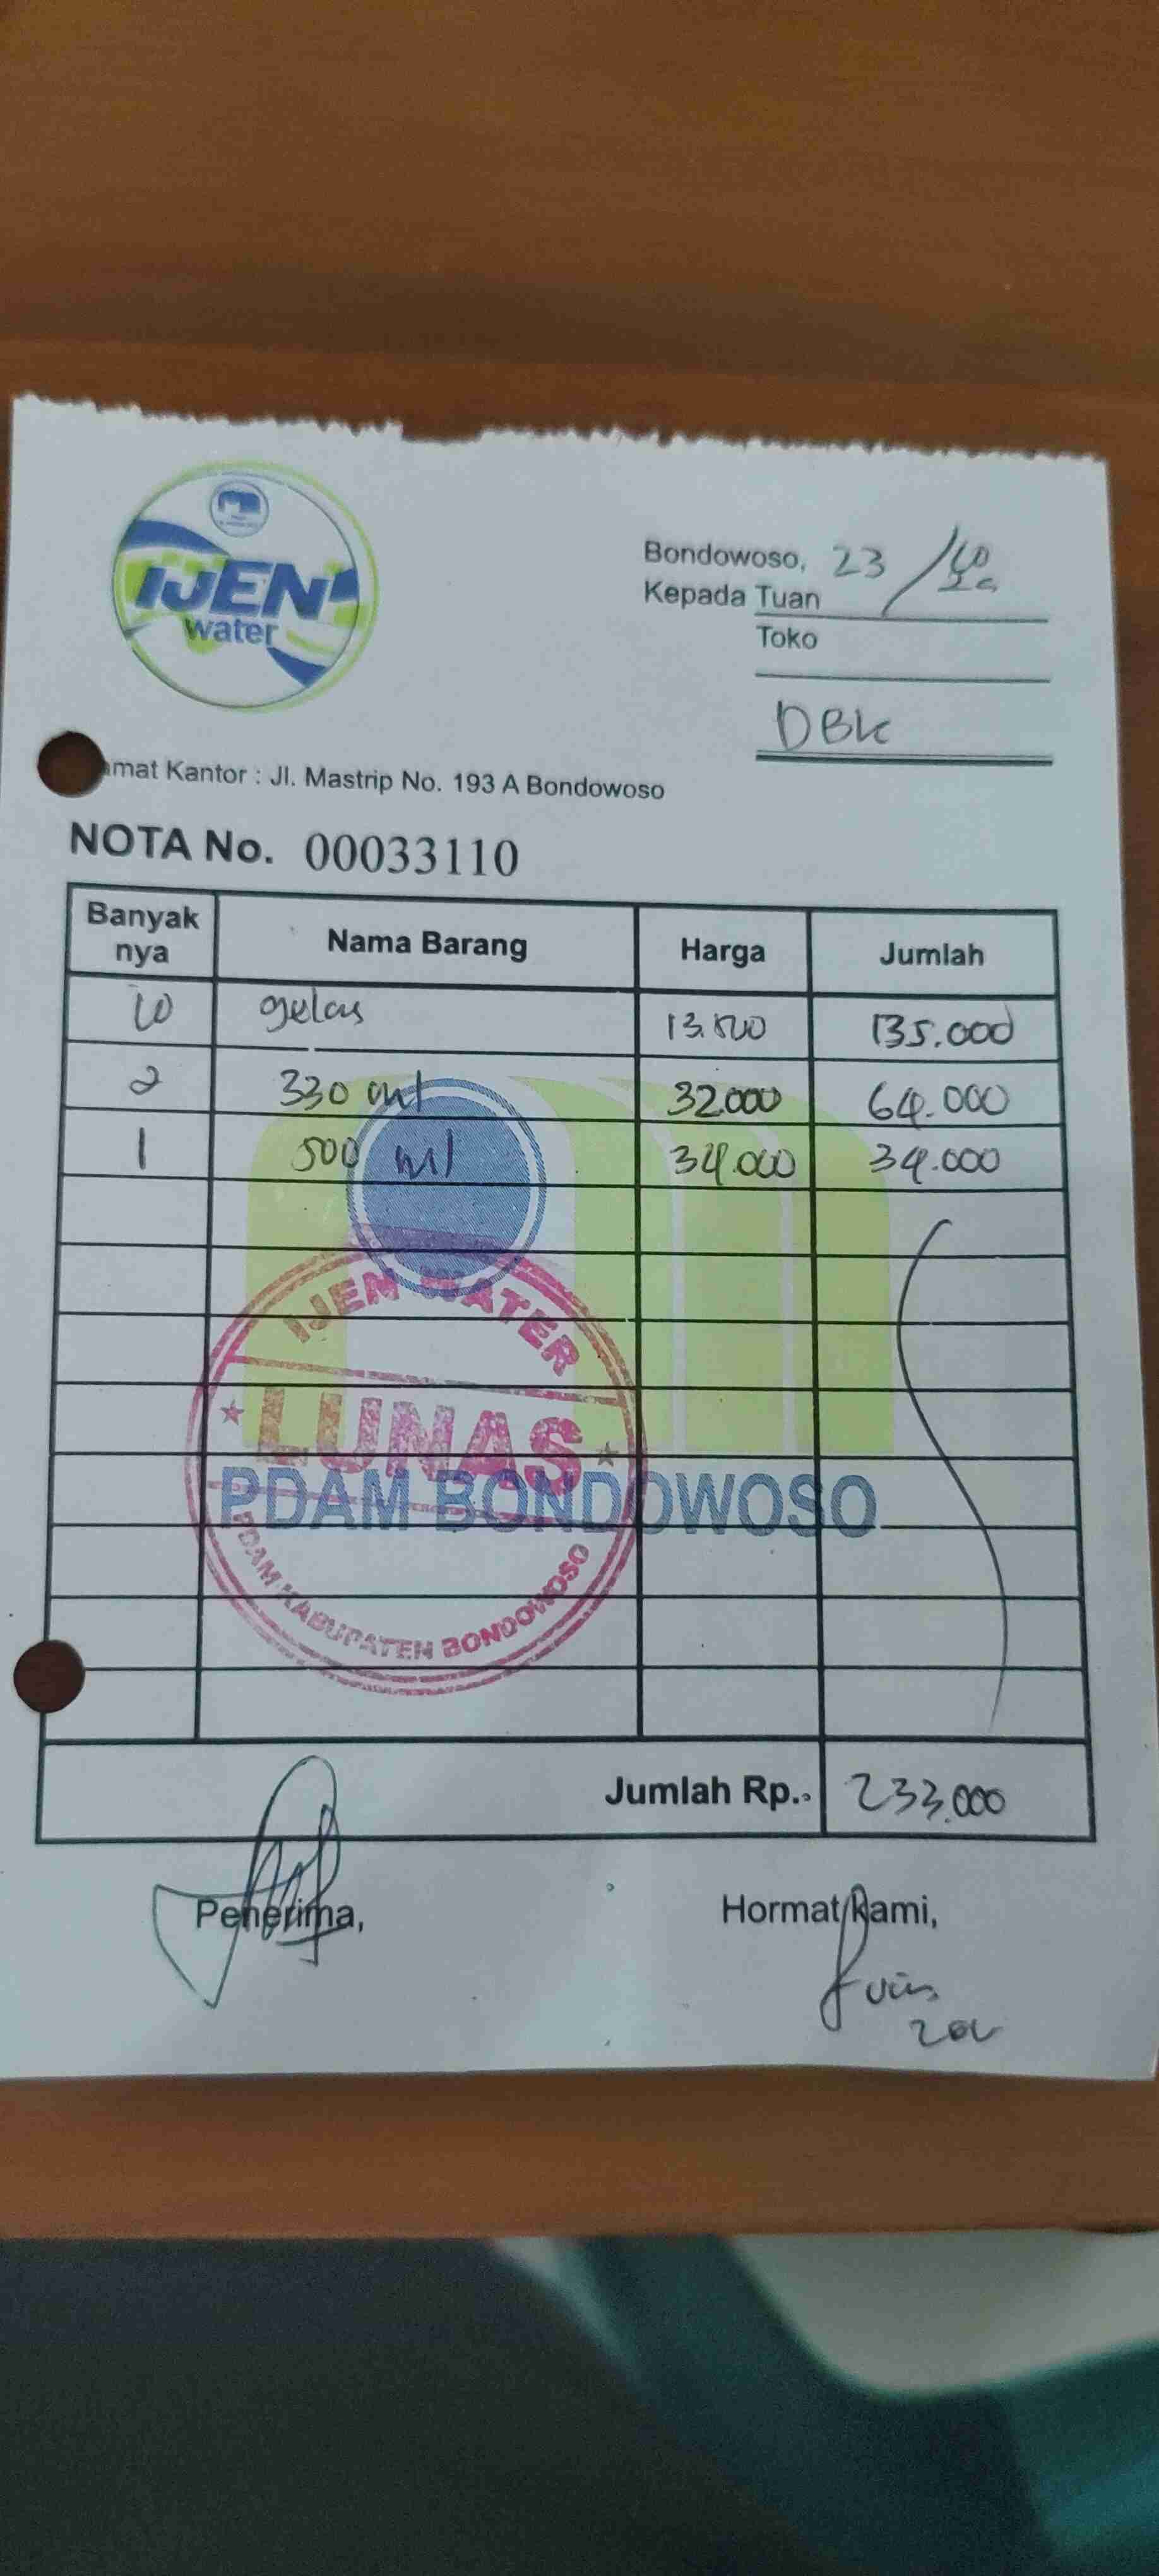 IJEN
water
Bondowoso, 23 / 10
Kepada Tuan
Toko
DBK
amat Kantor : Jl. Mastrip No. 193 A Bondowoso
NOTA No. 00033110
Banyak nya Nama Barang Harga Jumlah
10 gelas 13.500 135.000
2 330 ml 32.000 64.000
1 500 ml 34.000 34.000
IJEN WATER
LUNAS
PDAM BONDOWOSO
PDAM KABUPATEN BONDOWOSO
Jumlah Rp. 233.000
Penerima, Hormat Kami,